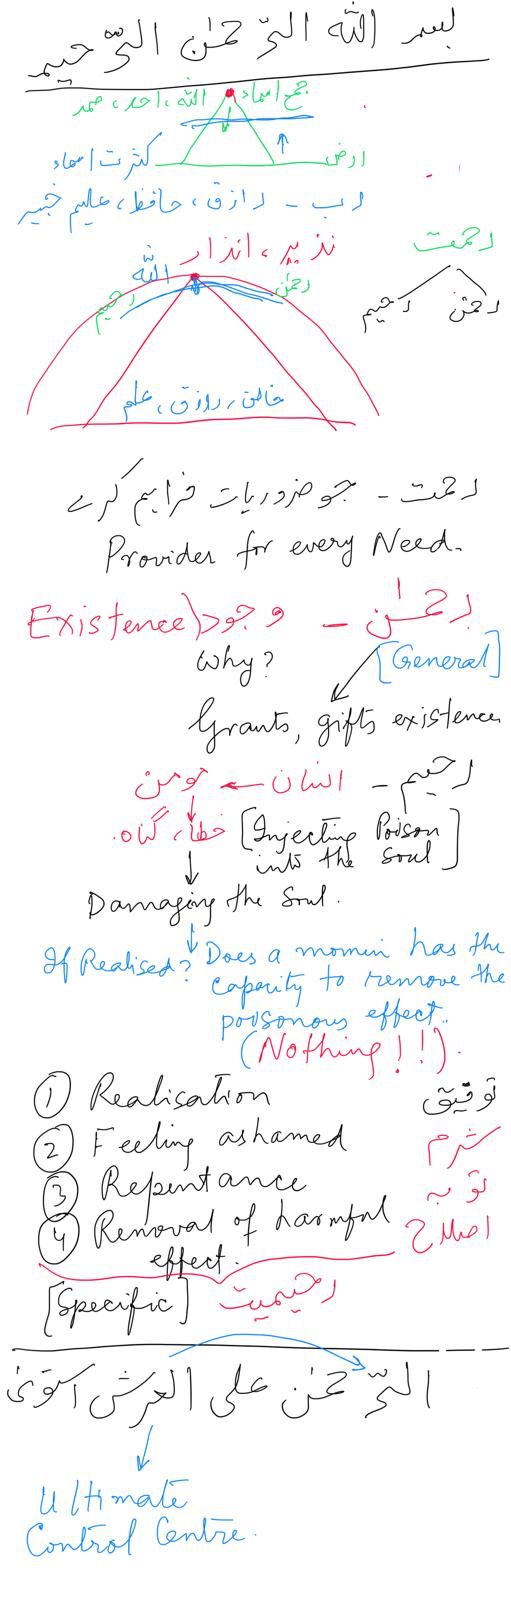 بسم الله الرّحمٰن الرّحیم
جمع اسماء الله، احد، صمد
ارض کثرت اسماء
رب - رازق، حافظ، علیم خبیر
نذیر، انذار
رحمت
الله
رحمٰن رحیم
رحمٰن رحیم
خالق، رازق، علم
رحمت - جو ضروریات فراہم کرے
Provider for every Need.
رحمٰن - وجود (Existence
Why? [General]
Grants, gifts existence
رحیم - انسان ← مومن
خطا، گناہ. [Injecting Poison into the Soul]
Damaging the Soul.
If Realised? Does a momin has the
capacity to remove the
poisonous effect..
(Nothing!!).
① Realisation توفیق
② Feeling ashamed شرم
③ Repentance توبہ
④ Removal of harmful اصلاح
effect.
[Specific] رحیمیت
الرّحمٰن علی العرش استوٰی
Ultimate
Control Centre.